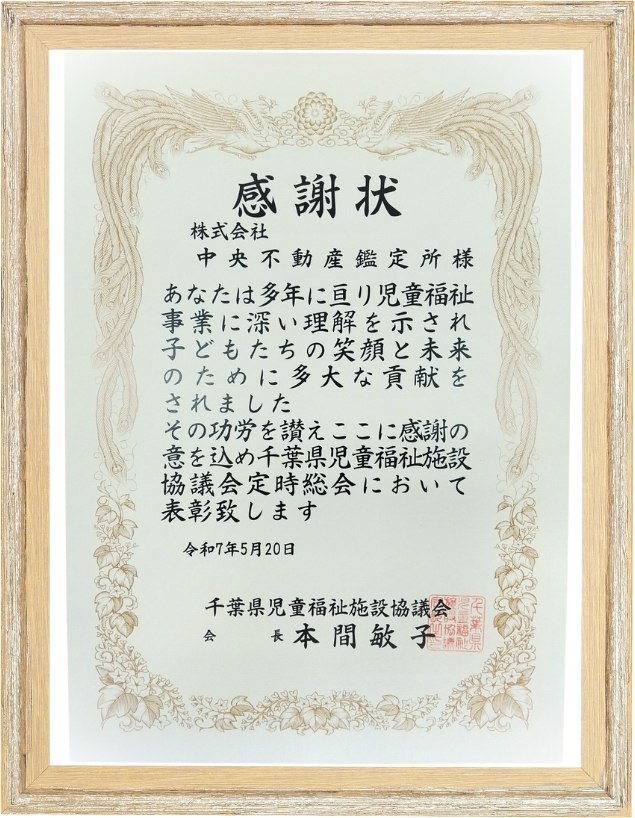 感謝状
株式会社
中央不動産鑑定所様
あなたは多年に亘り児童福祉
事業に深い理解を示され
子どもたちの笑顔と未来
のために多大な貢献を
されました
その功労を讃えここに感謝の
意を込め千葉県児童福祉施設
協議会定時総会において
表彰致します
令和7年5月20日
千葉県児童福祉施設協議会
会長 本間敏子